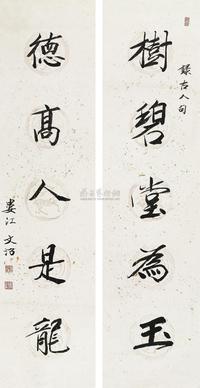 樹碧堂為玉
錄古人句
德高人是龍
婁江